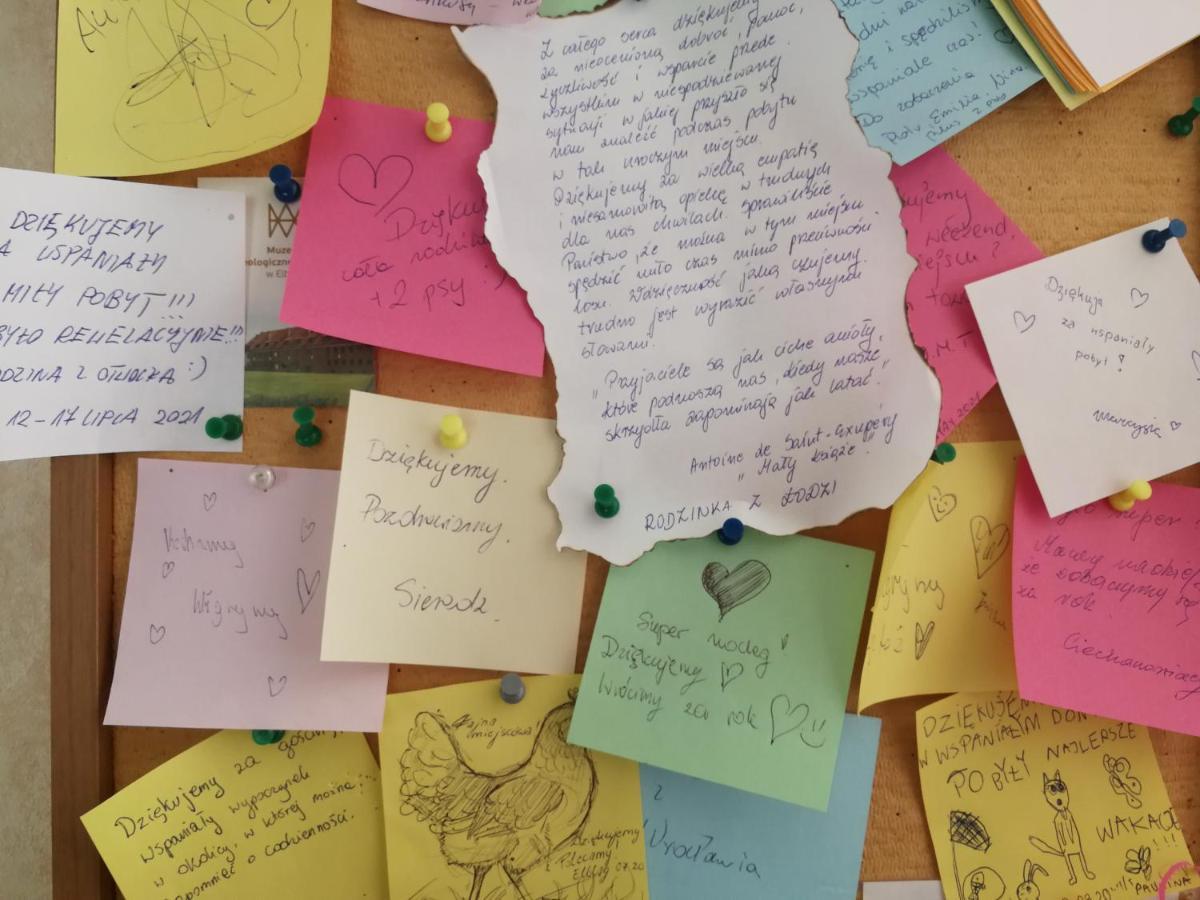 Z całego serca dziękujemy
za nieocenioną dobroć, pomoc,
życzliwość i wsparcie przede
wszystkim w niespodziewanej
sytuacji w jakiej przyszło się
nam znaleźć podczas pobytu
w tak uroczym miejscu.
Dziękujemy za wielką empatię
i niesamowitą opiekę w trudnych
dla nas chwilach. Sprawiliście
Państwo, że można w tym miejscu
spędzić miło czas mimo przeciwności
losu. Wdzięczność jaką czujemy
trudno jest wyrazić własnymi
słowami.
"Przyjaciele są jak ciche anioły,
które podnoszą nas, kiedy nasze
skrzydła zapominają jak latać."
Antoine de Saint-Exupéry
"Mały książe"
RODZINKA Z ŁODZI
i spędziliśmy
wspaniale czas!
Do zobaczenia
Emilia
Dzięku
cała rodzin
+2 psy :)
DZIĘKUJEMY
A WSPANIAŁY
MIŁY POBYT!!!
BYŁO REWELACYJNIE!!!
ODZINA Z OŁAWKA :)
12-17 LIPCA 2021
Muze
eologiczne
w Elb
ujemy
weekend
M.T
2021
Dziękuję
za wspaniały
pobyt!
Marcysia
Kochamy
Wigry my
Dziękujemy.
Pozdrawiamy.
Sieradz.
Super nocleg!
Dziękujemy
Wrócimy za rok
super
że zobaczymy się
za rok
Dziękujemy za gościnę,
wspaniały wypoczynek
w okolicy, w której można
apomnieć o codzienności.
Fajna
miejscówa!
Dziękujemy
Polecamy
07.20
z
Wrocławia
DZIĘKUJEM
W WSPANIAŁYM DOM
POBYŁY NAJLEPSZE
WAKACJE
!!!
PAULINA